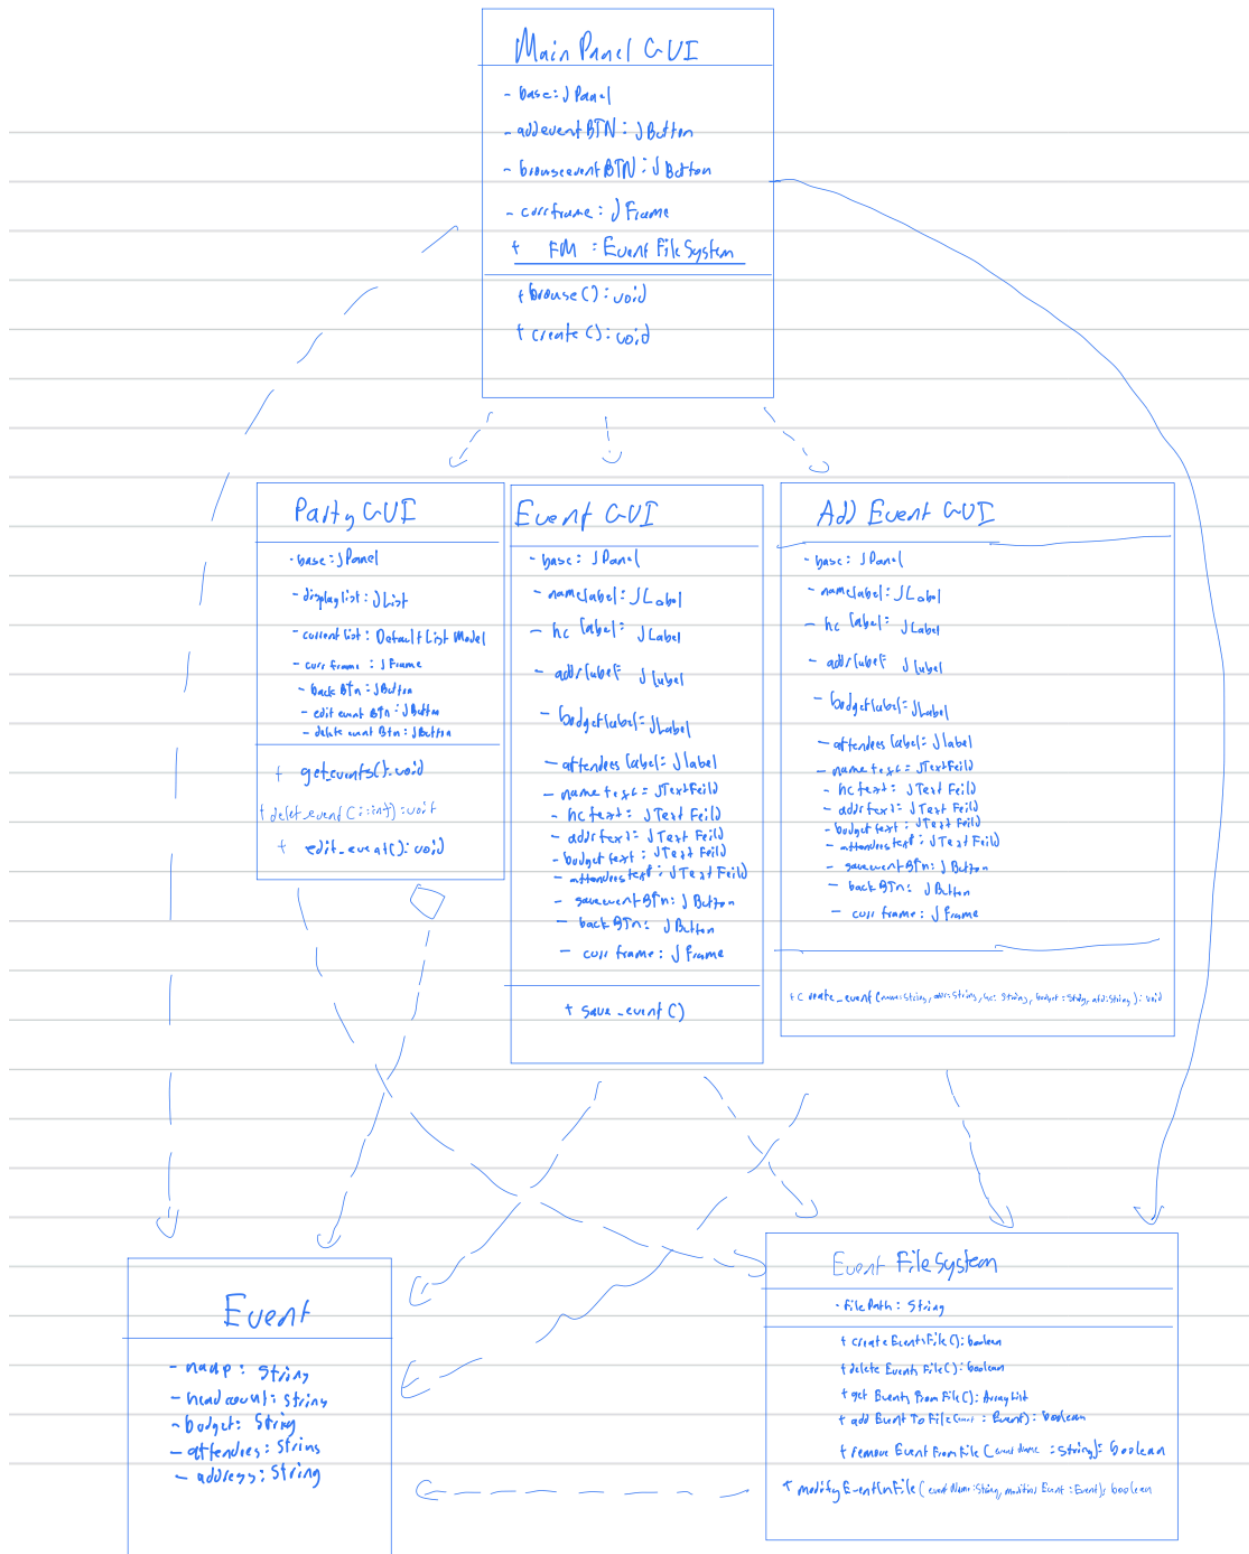 Main Panel GUI
- base: JPanel
- addeventBTN: JButton
- browseeventBTN: JButton
- currframe: JFrame
+ FM : Event File System
+ browse(): void
+ create(): void
Party GUI
- base: JPanel
- displaylist: JList
- currentlist: Default List Model
- curr frame : JFrame
- back BTn: JButton
- edit event BTn: JButton
- delete event Btn: JButton
+ get_events(): void
+ delet_event(i:int): void
+ edit_event(): void
Event GUI
- base: JPanel
- namelabel: JLabel
- hc label: JLabel
- addrlabel: JLabel
- budgetlabel: JLabel
- attendees label: Jlabel
- name text: JTextFeild
- hc text: JText Feild
- addrtext: JText Feild
- budget text: JText Feild
- attendees text: JText Feild
- saveeventBTn: JButton
- back BTn: JButton
- curr frame: JFrame
+ save_event()
Add Event GUI
- base: JPanel
- namelabel: JLabel
- hc label: JLabel
- addrlabel: JLabel
- budgetlabel: JLabel
- attendees label: Jlabel
- name text: JTextFeild
- hc text: JText Feild
- addrtext: JText Feild
- budget text: JText Feild
- attendees text: JText Feild
- saveeventBTn: JButton
- back BTn: JButton
- curr frame: JFrame
+ create_event(name:String, addr:String, hc: String, budget: String, atd:String): void
Event
- name: String
- headcount: String
- budget: String
- attendees: String
- address: String
Event File System
- filePath: String
+ create EventsFile(): boolean
+ delete Events File(): boolean
+ get Events From File(): ArrayList
+ add Event To File(event : Event): boolean
+ remove Event From File(event Name : String): boolean
+ modifyEventInFile(event Name:String, Event:Event): boolean